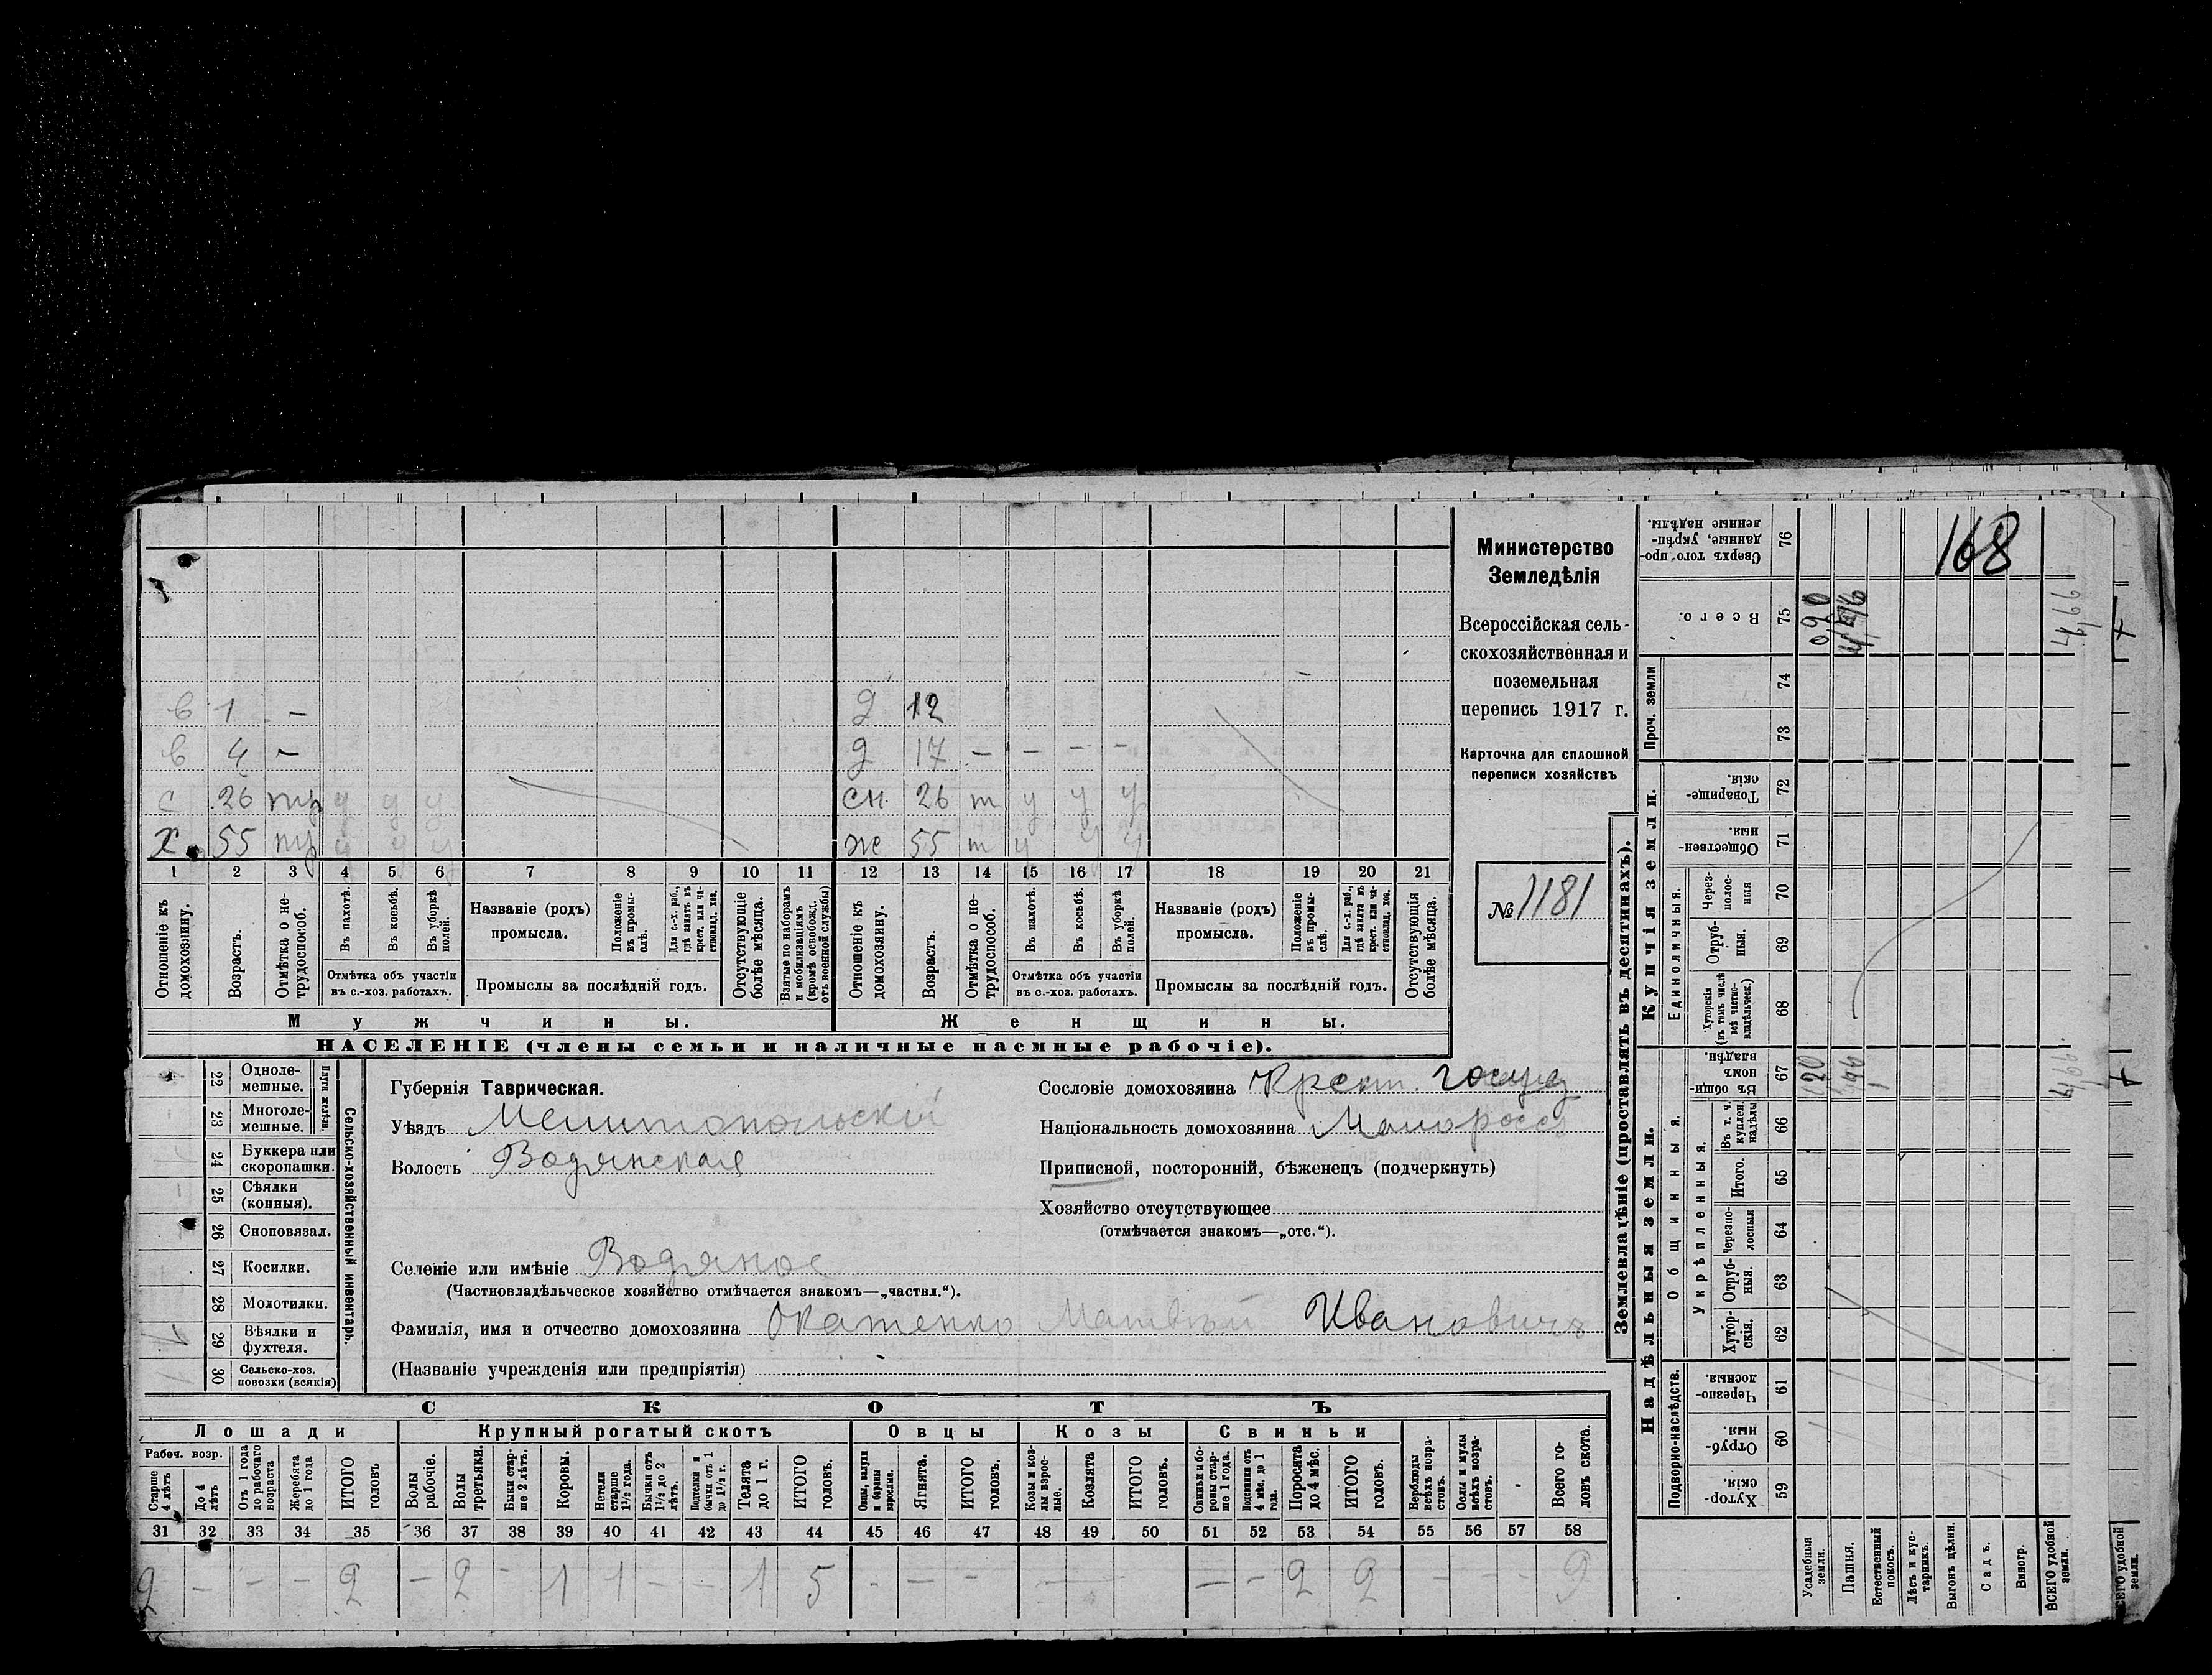 Министерство
Земледѣлія
Всероссійская сель-
скохозяйственная и
поземельная
перепись 1917 г.
Карточка для сплошной
переписи хозяйствъ
№ 1181
168
в 1 - д 12
в 4 - д 17 - - - -
с 26 тр у у у сн. 26 т у у у
х. 55 тр у у у же 55 т у у у
1 2 3 4 5 6 7 8 9 10 11 12 13 14 15 16 17 18 19 20 21
Отношеніе къ домохозяину.
Возрастъ.
Отмѣтка о не-трудоспособ.
Въ пахотѣ.
Въ косьбѣ.
Въ уборкѣ полей.
Отмѣтка объ участіи
въ с.-хоз. работахъ.
Названіе (родъ)
промысла.
Положеніе въ промы-слѣ.
Для с.-х. раб., гдѣ занятъ въ крест. или ча-стновлад. хоз.
Промыслы за послѣдній годъ.
Отсутствующіе болѣе мѣсяца.
Взятые по наборамъ и мобилизаціямъ (кромѣ освобожд. отъ военной службы)
Отношеніе къ домохозяину.
Возрастъ.
Отмѣтка о не-трудоспособ.
Въ пахотѣ.
Въ косьбѣ.
Въ уборкѣ полей.
Отмѣтка объ участіи
въ с.-хоз. работахъ.
Названіе (родъ)
промысла.
Положеніе въ промы-слѣ.
Для с.-х. раб., гдѣ занята въ крест. или ча-стновлад. хоз.
Промыслы за послѣдній годъ.
Отсутствующія болѣе мѣсяца.
Мужчины.
Женщины.
НАСЕЛЕНІЕ (члены семьи и наличные наемные рабочіе).
Сельско-хозяйственный инвентарь.
Плуги желѣзн.
22 Одноле-мешные.
23 Многоле-мешные.
24 Буккера или скоропашки.
25 Сѣялки (конныя).
26 Сноповязал.
27 Косилки.
28 Молотилки.
29 Вѣялки и фухтеля.
30 Сельско-хоз. повозки (всякія)
Губернія Таврическая.
Уѣздъ Мелитопольскій
Волость Водянская
Селеніе или имѣніе Водяное
(Частновладѣльческое хозяйство отмѣчается знакомъ—„частвл.“).
Фамилія, имя и отчество домохозяина Окатенко Матвѣй Ивановичъ
(Названіе учрежденія или предпріятія)
Сословіе домохозяина Крест. госуд
Національность домохозяина Малоросс
Приписной, посторонній, бѣженецъ (подчеркнуть)
Хозяйство отсутствующее
(отмѣчается знакомъ—„отс.“).
СКОТЪ
Лошади
Крупный рогатый скотъ
Овцы
Козы
Свиньи
Рабоч. возр.
Старше 4 лѣтъ
До 4 лѣтъ
Отъ 1 года до рабочаго возраста
Жеребята до 1 года
ИТОГО головъ
Волы рабочіе.
Волы третьяки.
Быки стар-ше 2 лѣтъ.
Коровы.
Нетели старше 1½ года.
Бычки отъ 1½ до 2 лѣтъ.
Подтелки и бычки отъ 1 до 1½ г.
Телята до 1 г.
ИТОГО головъ.
Овцы, валухи и бараны взрослые.
Ягнята.
ИТОГО головъ.
Козы и коз-лы взрос-лые.
Козлята
ИТОГО головъ.
Свиньи и бо-ровы стар-ше 1 года.
Подсвинки отъ 4 мѣс. до 1 года.
Поросята до 4 мѣс.
ИТОГО головъ.
Верблюды всѣхъ возра-стовъ.
Ослы и мулы всѣхъ возра-стовъ.
Всего го-ловъ скота.
31 32 33 34 35 36 37 38 39 40 41 42 43 44 45 46 47 48 49 50 51 52 53 54 55 56 57 58
2 - - - 2 - 2 - 1 1 - - 1 5 - - - - - - - 2 2 - - - 9
Землевладѣніе (проставлять въ десятинахъ).
Надѣльныя земли.
Купчія земли.
Проч. земли
Подворно-наслѣдств.
Общинныя.
Укрѣпленныя.
Единоличныя.
Хутор-скія. 59
Отруб-ныя. 60
Черезпо-лосныя. 61
Хутор-скія. 62
Отруб-ныя. 63
Черезпо-лосныя 64
Итого. 65
Въ т. ч. куплен. надѣлы 66
Въ общин-номъ владѣн. 67
Хуторскія (въ томъ числѣ всѣ частно-владѣльческ.) 68
Отруб-ныя. 69
Через-полос-ныя 70
Обществен-ныя 71
Товарище-скія. 72
73
74
Всего. 75
Сверхъ того про-данные, укрѣп-ленные надѣлы. 76
Усадебныя земли.
Пашня.
Естественный покосъ.
Лѣсъ и кус-тарникъ.
Выгонъ цѣлин.
Садъ.
Виногр.
ВСЕГО удобной земли.
4,66